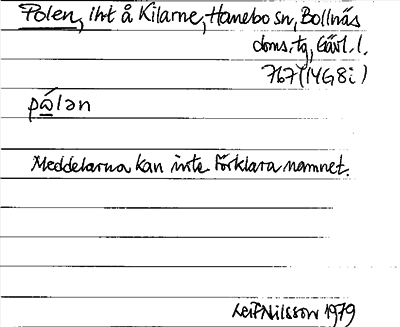 Polen, iht å Kilarne, Hanebo sn, Bollnäs
doms.tg, Gävl. l.
767 (14G8i)
pålən
Meddelarna kan inte förklara namnet.
Leif Nilsson 1979